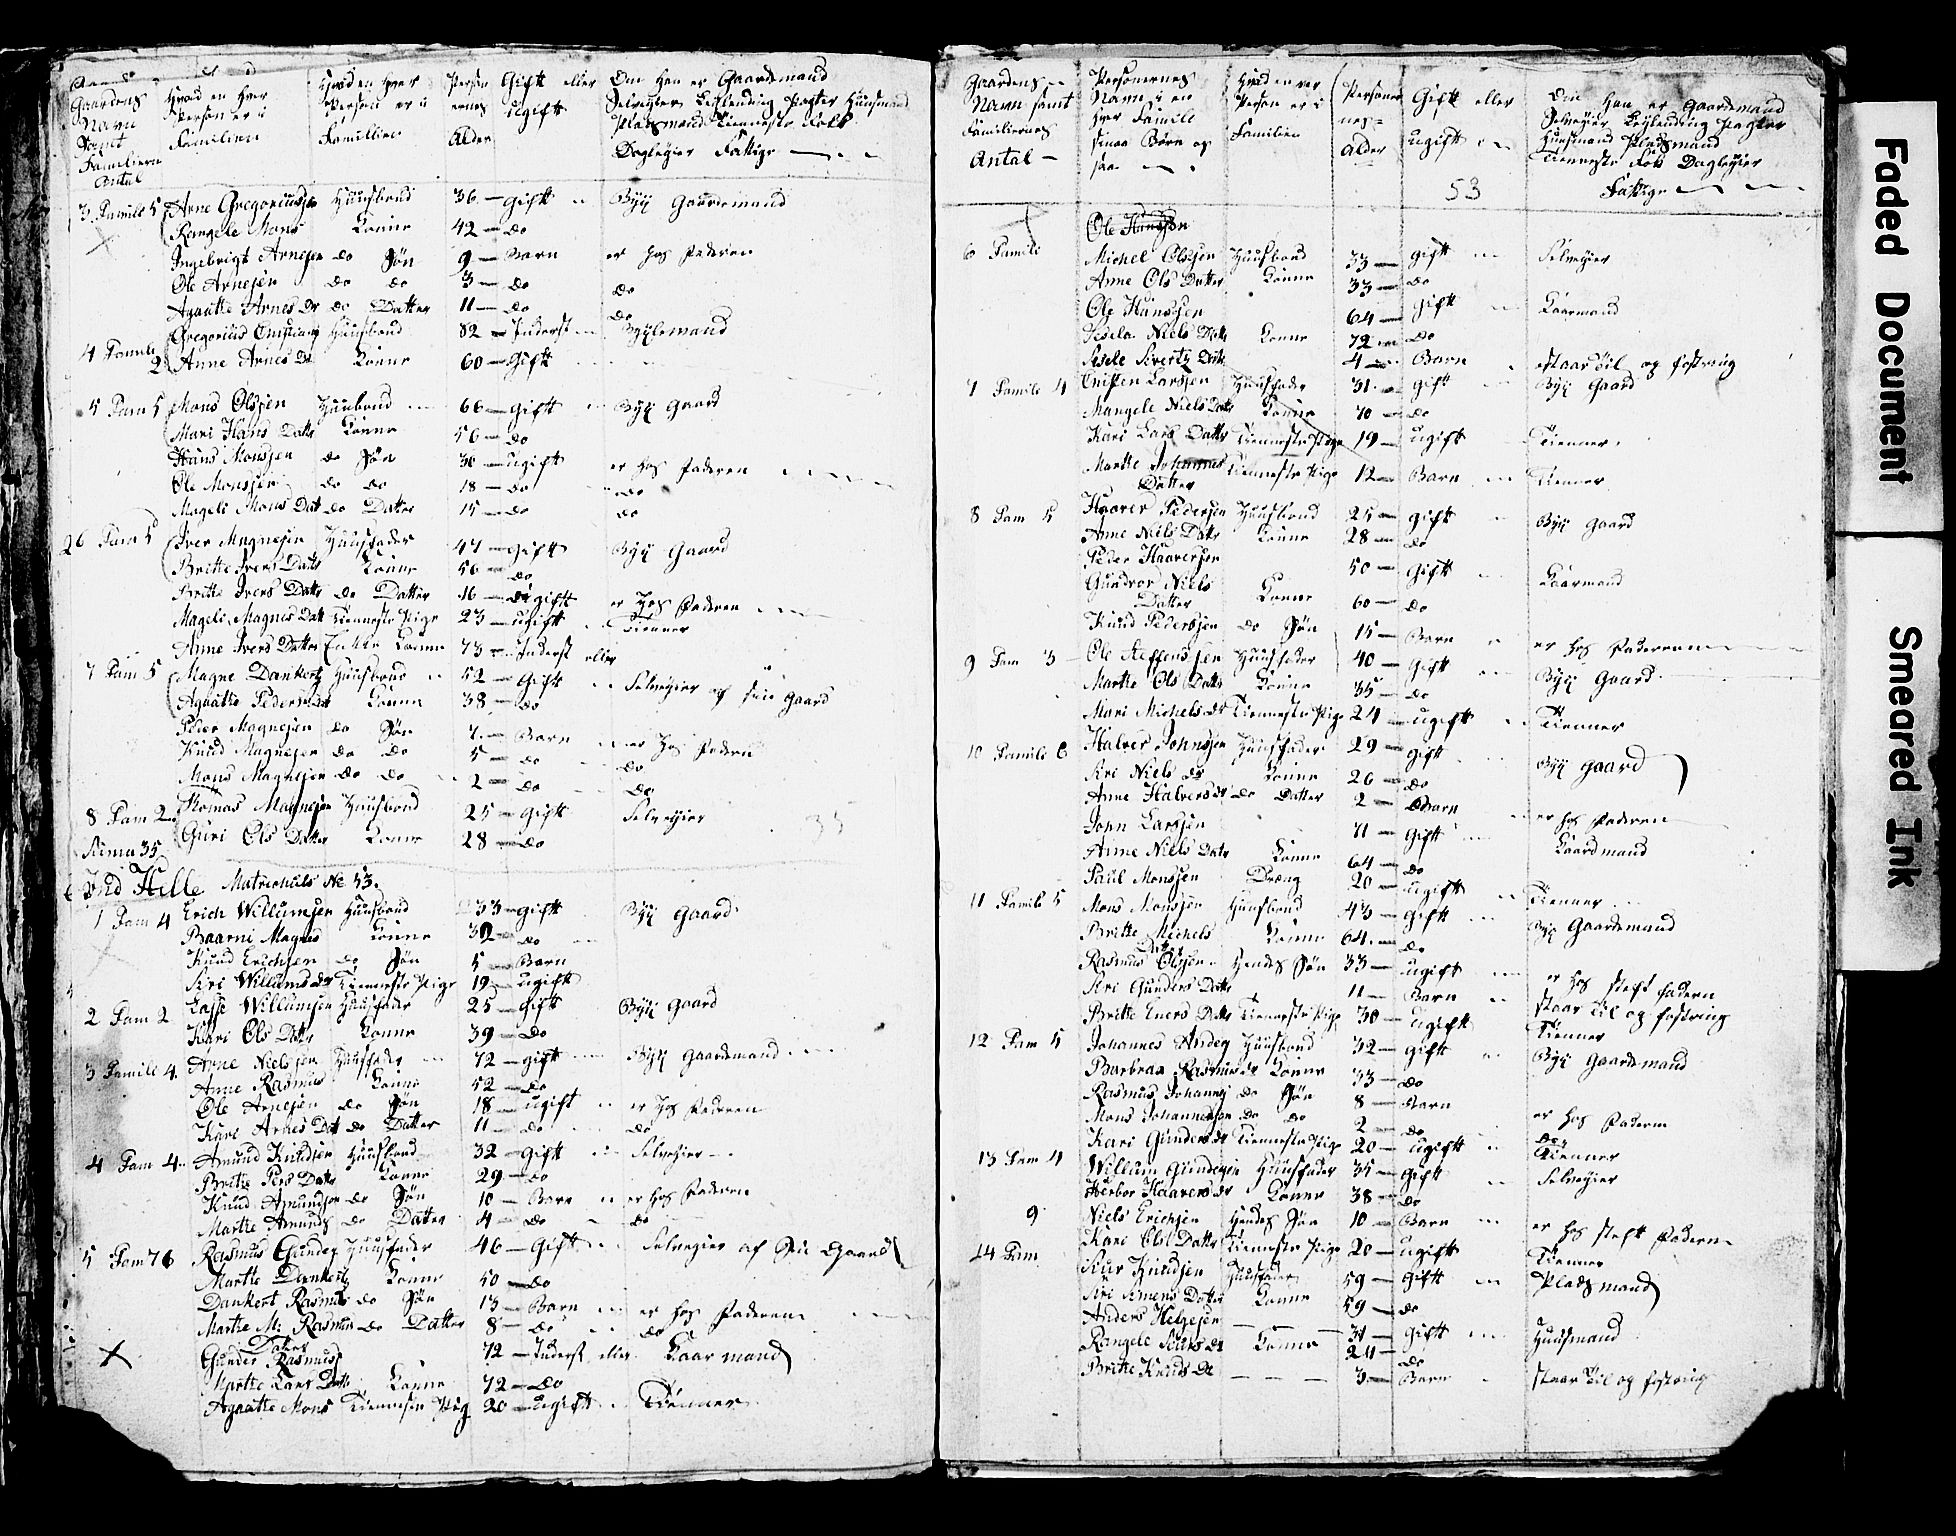 Gaardens Navn Samt Familiern Antal
Hvad en Hver Person er i Familien
Hvad en Hver Person er i Familien
Person ernes Alder
Gift eller ugift
Om Han er Gaardemand Selveyer Leylending Pagter Huusmand Pladsmand Tienneste Folk Dagleyier Fattige
3 Famili 5 Arne Gregoriussen Huusbond 36 — gift Byx Gaardemand
Rangele Mons Konne 42 — do
Ingebrigt Arnesen do Søn 9 — Barn er hos Faderen
Ole Arnesen do do 3 — do do
Agaatte Arnes Dr do Datter 11 — do do
4 Famile 2 Gregorius Cristians Huusbond 82 — Inderst Byxlemand
Anne Arnes Dr Konne 60 — Gift
5 Fam 5 Mons Olssen Huusbond 66 — gift Byx Gaard
Mari Hans Dattr Konne 56 — do
Hans Monssen do Søn 30 — ugift er hos Faderen
Ole Monssen do do 18 — do do
Mageli Mons Dat do Datter 15 — do do
6 Fam 5 Iver Magnesen Huusfader 47 — gift Byx Gaard
Britte Ivers Datt Konne 56 — do
Britte Ivers Dattr do Datter 16 — ugift er Hos Faderen
Mageli Magnes Datt Tienneste Pige 23 — ugift Tienner
Anne Ivers Datter Enkke Konne 73 — Inderst eller
7 Fam 5 Magne Dankertz Huusbond 52 — Gift Selveyier af sin Gaard
Agaatte Peders Datr Konne 38 — do
Peder Magnesen do Søn 7 — Barn er hos Faderen
Knud Magnesen do do 5 — do do
Mons Magnesen do do 2 — do do
8 Fam 2 Thomas Magnesen Huusbond 25 — Gift Selveyier
Guri Ols Datter Konne 28 — do
Suma 35
Ind Hille Matriculs No 53.
1 Fam 4 Erich Willumsen Huusbond 33 — gift Byx Gaard
Baarni Magnes Konne 32 — do
Knud Erichsen do Søn 5 — Barn
Siri Willums dr Tienneste Pige 19 — ugift
2 Fam 2 Lasse Willumsen Huusfader 25 — Gift Byx Gaard
Kari Ols Datr Konne 39 — do
3 Famili 4 Arne Nielssen Huusfader 72 — gift Byx Gaardemand
Anne Rasmus Konne 52 — do
Ole Arnesen do Søn 18 — ugift er hos Faderen
Kari Arnes Dat do Datter 11 — do do
4 Fam 4 Amund Knudsen Huusbond 32 — Gift Selveyier
Britte Pers Datr Konne 29 — do
Knud Amundsen do Søn 10 — Barn er hos Faderen
Marthe Amunds do Datter 4 — do do
5 Fam 7 6 Rasmus Gunders Huusfader 46 — Gift Selveyier af Sin Gaard
Marthe Dankertz Konne 50 — do
Dankert Rasmus do Søn 13 — Barn er hos Faderen
Marthe M: Rasmus do Datter 8 — do do
Datter
Gunder Rasmus 72 — Inderst eller Kaarmand
Marthe Lars Datt Konne 72 — do
Agaatte Mons Tienneste Pig 20 — ugift Tienner
Gaardens Navn samt Familiernes Antal —
Personernes Navn i en hver Famili smaa Børn og saa
Hvad en ver Person er i Familien
Personer nes Alder
Gift eller ugift
Om Han er Gaardemand Selveyier Leylending Pagter Huusmand Pladsmand Tienneste Folk Dagleyier Fattige
53
Ole Hanssen
6 Famili Michel Olssen Huusbond 33 — gift Selveyier
Anne Ols Datter Konne 33 — do
Ole Hanssen 64 — gift Kaarmand
Sisela Niels Datt Konne 72 — do
Sisele Sivertz Datt 4 — Barn staar til og fostring
7 Famile 4 Cristen Larssen Huusfader 31 — gift Byx Gaard
Mangele Niels Datr Konne 70 — do
Kari Lars Dattr Tienneste Pige 19 — ugift Tienner
Marthe Johannes Datter Tienneste Pige 12 — Barn Tienner
8 Fam 5 Haaver Pedersen Huusbond 25 — gift Byx Gaard
Anne Niels Dattr Konne 28 — do
Peder Haaversen 50 — Gift Kaarmand
Gundvor Niels Datter Konne 60 — do
Knud Pedersen do Søn 15 — Barn er hos Faderen
9 Fam 3 Ole Steffenssen Huusfader 40 — Gift Byx Gaard
Marthe Ols Dattr Konne 35 — do
Mari Michels dr Tienneste Pige 24 — ugift Tienner
10 Famili 6 Halver Johnssen Huusfader 29 — gift Byx gaard
Siri Niels dr Konne 26 — do
Anne Halvers dr do Datter 2 — Barn er hos Faderen
John Larssen 71 — Gift Kaardmand
Anne Niels Datr Konne 64 — do
Paul Monssen Dreng 20 — ugift Tienner
11 Famili 5 Mons Monssen Huusbond 43 — Gift Byx Gaardemand
Britte Michels Datt Konne 64 — do
Rasmus Olssen Hendes Søn 33 — ugift er hos stef fadern
Siri Gunders Dattr 11 — Barn staar til og fostring
Britte Eners Datr Tienneste Pige 30 — ugift Tienner
12 Fam 5 Johannes Anders Huusbond 32 — gift Byx Gaardemand
Barbraa Rasmus dr Konne 33 — do
Rasmus Johannes do Søn 8 — Barn er hos Faderen
Mons Johannessen do do 2 — do do
Kari Gunders dr Tienneste Pige 20 — ugift Tienner
13 Fam 4 Willum Gundersen Huusfader 35 — gift Selveyier
Herbor Haavers dr Konne 38 — do
9 Niels Erichsen Hendes Søn 10 — Barn er hos steft Faderen
Kari Ols Dattr Tienneste Pige 20 — ugift Tienner
14 Fam Siur Knudsen Huusfader 59 — gift Pladsmand
Siri Simens Datter Konne 59 — do
Anders Helgesen 31 — Gift Huusmand
Rangele Siurs dr Konne 24 — do
Britte Knuds Dr 3 — Barn staar til og fostring
Faded Document
Smeared Ink